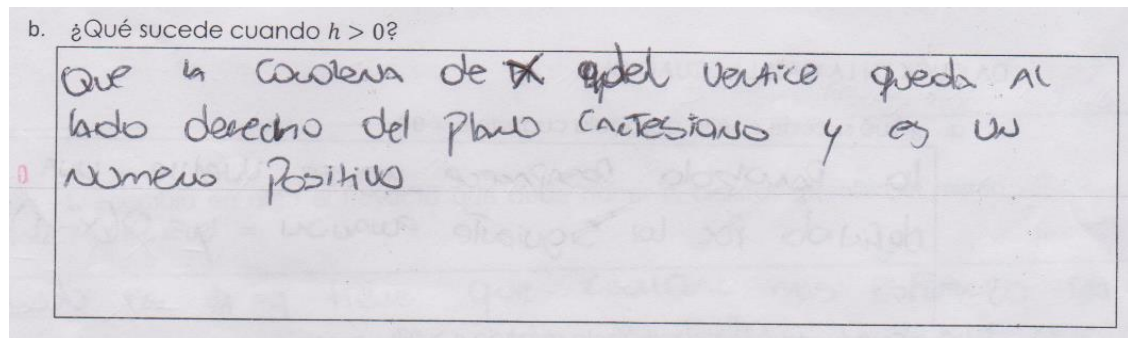 b. ¿Qué sucede cuando h > 0?
Que la coordena de x del vertice queda al
lado derecho del plano cartesiano y es un
numero positivo